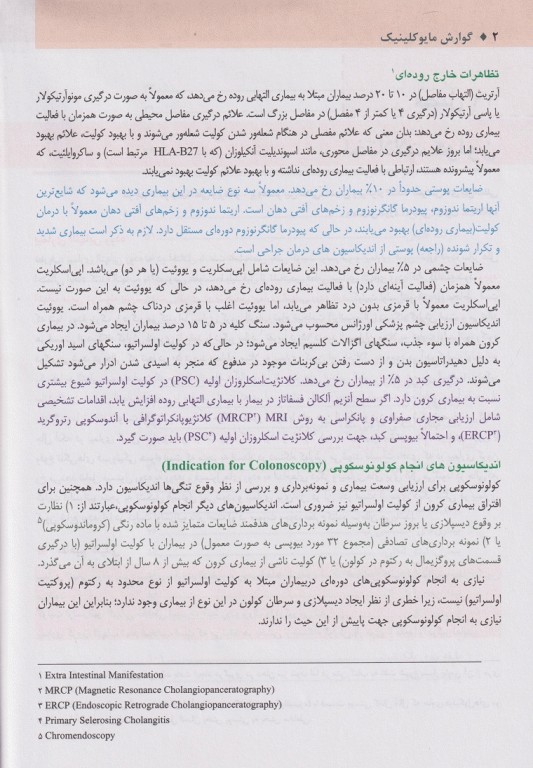 ۲ ♦ گوارش مایوکلینیک
تظاهرات خارج روده‌ای۱
آرتریت (التهاب مفاصل) در ۱۰ تا ۲۰ درصد بیماران مبتلا به بیماری التهابی روده رخ می‌دهد، که معمولاً به صورت درگیری مونوآرتیکولار
یا پاسی آرتیکولار (درگیری ۴ یا کمتر از ۴ مفصل) در مفاصل بزرگ است. علائم درگیری مفاصل محیطی به صورت همزمان با فعالیت
بیماری روده رخ می‌دهد: بدان معنی که علائم مفصلی در هنگام شعله‌ور شدن کولیت شعله‌ور می‌شوند و با بهبود کولیت، علائم بهبود
می‌یابد؛ اما بروز علایم درگیری در مفاصل محوری، مانند اسپوندیلیت آنکیلوزان (که با HLA-B27 مرتبط است) و ساکروایلئیت، که
معمولاً پیشرونده هستند، ارتباطی با فعالیت بیماری روده‌ای نداشته و با بهبود علائم کولیت بهبود نمی‌یابند.
ضایعات پوستی حدوداً در ۱۰٪ بیماران رخ می‌دهد. معمولاً سه نوع ضایعه در این بیماری دیده می‌شود که شایع‌ترین
آنها اریتما ندوزوم، پیودرما گانگرنوزوم و زخم‌های آفتی دهان است. اریتما ندوزوم و زخم‌های آفتی دهان معمولاً با درمان
کولیت(بیماری روده‌ای) بهبود می‌یابند، در حالی که پیودرما گانگرنوزوم دوره‌ای مستقل دارد. لازم به ذکر است بیماری شدید
و تکرار شونده (راجعه) پوستی از اندیکاسیون های درمان جراحی است.
ضایعات چشمی در ۵٪ بیماران رخ می‌دهد. این ضایعات شامل اپی‌سکلریت و یووئیت (یا هر دو) می‌باشد. اپی‌اسکلریت
معمولاً همزمان (فعالیت آینه‌ای دارد) با فعالیت بیماری روده‌ای رخ می‌دهد، در حالی که یووئیت به این صورت نیست.
اپی‌اسکلریت معمولاً با قرمزی بدون درد تظاهر می‌یابد، اما یووئیت اغلب با قرمزی دردناک چشم همراه است. یووئیت
اندیکاسیون ارزیابی چشم پزشکی اورژانس محسوب می‌شود. سنگ کلیه در ۵ تا ۱۵ درصد بیماران ایجاد می‌شود. در بیماری
کرون همراه با سوء جذب، سنگهای اگزالات کلسیم ایجاد می‌شود؛ در حالی‌که در کولیت اولسراتیو، سنگهای اسید اوریکی
به دلیل دهیدراتاسیون بدن و از دست رفتن بی‌کربنات موجود در مدفوع که منجر به اسیدی شدن ادرار می‌شود تشکیل
می‌شوند. درگیری کبد در ۵٪ از بیماران رخ می‌دهد. کلانژیت‌اسکلروزان اولیه (PSC) در کولیت اولسراتیو شیوع بیشتری
نسبت به بیماری کرون دارد. اگر سطح آنزیم آلکالن فسفاتاز در بیمار با بیماری التهابی روده افزایش یابد، اقدامات تشخیصی
شامل ارزیابی مجاری صفراوی و پانکراسی به روش MRI (MRCP۲) کلانژیوپانکراتوگرافی با آندوسکوپی رتروگرید
(ERCP۳)، و احتمالاً بیوپسی کبد، جهت بررسی کلانژیت اسکلروزان اولیه (PSC۴) باید صورت گیرد.
اندیکاسیون های انجام کولونوسکوپی (Indication for Colonoscopy)
کولونوسکوپی برای ارزیابی وسعت بیماری و نمونه‌برداری و بررسی از نظر وقوع تنگی‌ها اندیکاسیون دارد. همچنین برای
افتراق بیماری کرون از کولیت اولسراتیو نیز ضروری است. اندیکاسیون‌های دیگر انجام کولونوسکوپی،عبارتند از: ۱) نظارت
بر وقوع دیسپلازی یا بروز سرطان به‌وسیله نمونه برداری‌های هدفمند ضایعات متمایز شده با ماده رنگی (کروماندوسکوپی)۵
یا ۲) نمونه برداری‌های تصادفی (مجموع ۳۲ مورد بیوپسی به صورت معمول) در بیماران با کولیت اولسراتیو (با درگیری
قسمت‌های پروگزیمال به رکتوم در کولون) یا ۳) کولیت ناشی از بیماری کرون که بیش از ۸ سال از ابتلای به آن می‌گذرد.
نیازی به انجام کولونوسکوپی‌های دوره‌ای دربیماران مبتلا به کولیت اولسراتیو از نوع محدود به رکتوم (پروکتیت
اولسراتیو) نیست، زیرا خطری از نظر ایجاد دیسپلازی و سرطان کولون در این نوع از بیماری وجود ندارد؛ بنابراین این بیماران
نیازی به انجام کولونوسکوپی جهت پاییش از این حیث را ندارند.
۱ Extra Intestinal Manifestation
۲ MRCP (Magnetic Resonance Cholangiopanceratography)
۳ ERCP (Endoscopic Retrograde Cholangiopanceratography)
۴ Primary Selerosing Cholangitis
۵ Chromendoscopy